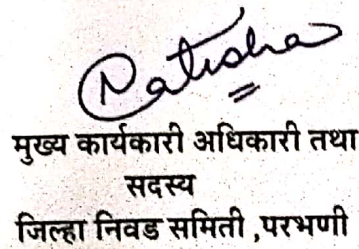 मुख्य कार्यकारी अधिकारी तथा
सदस्य
जिल्हा निवड समिती ,परभणी